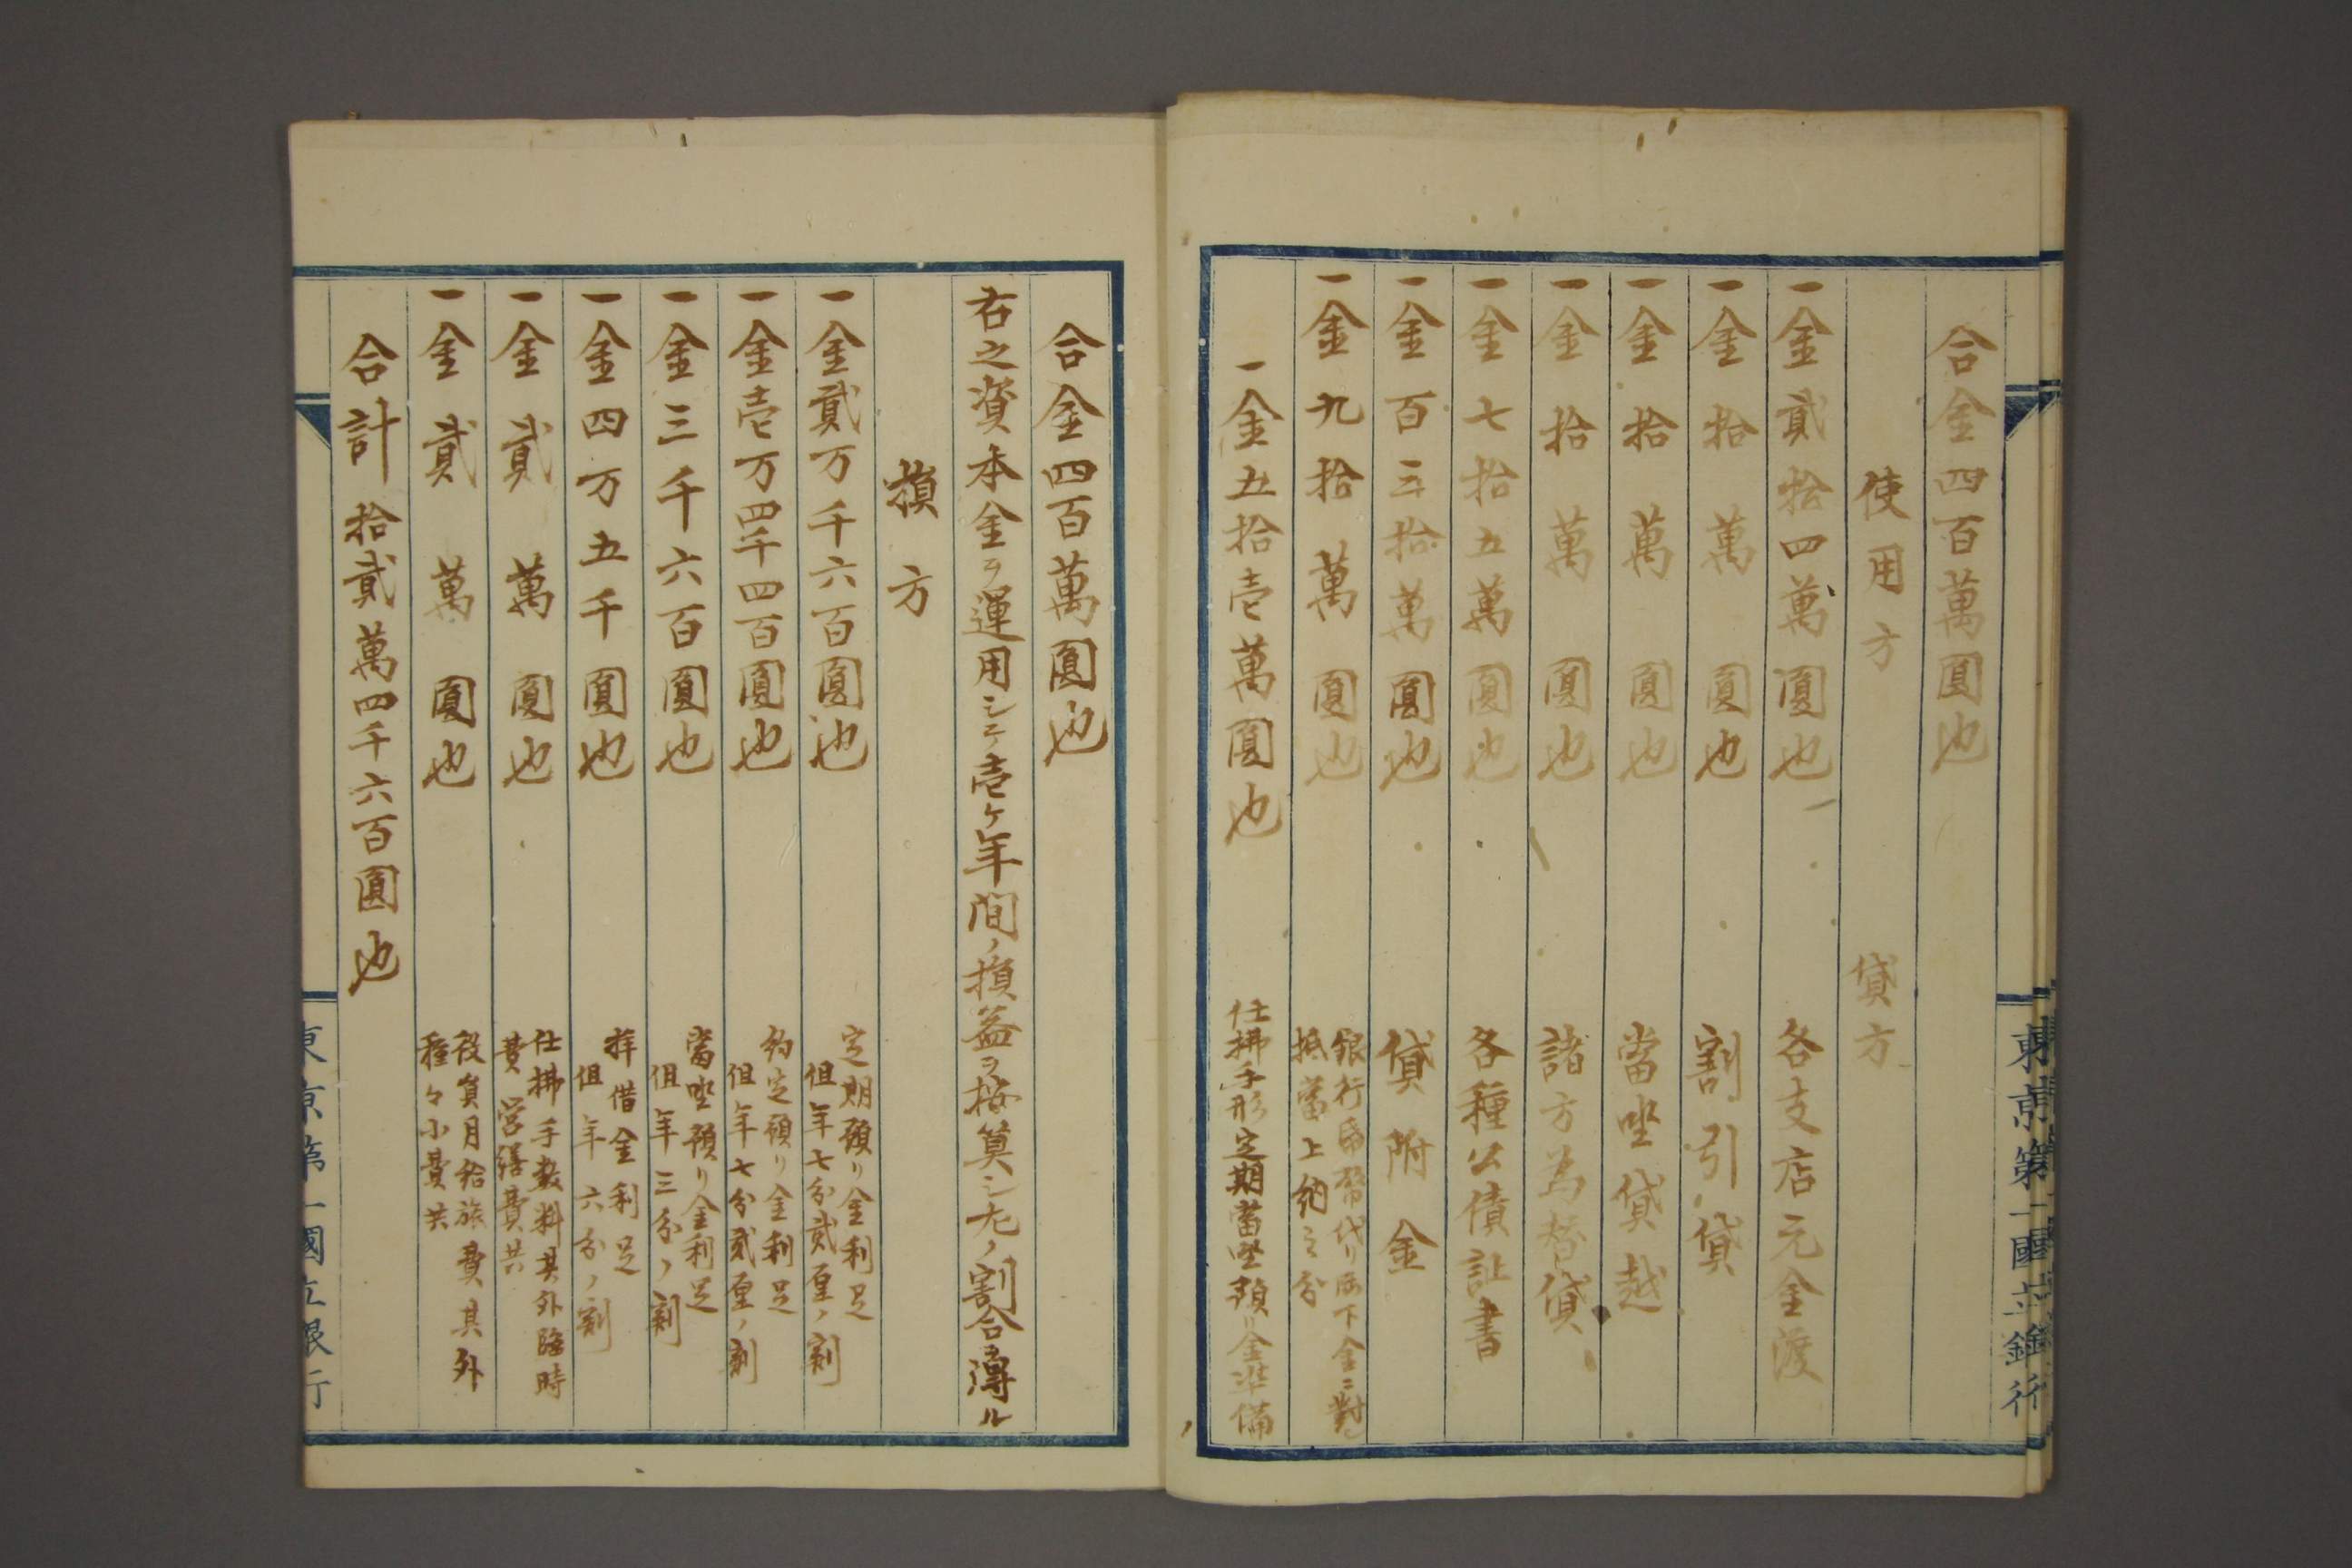 合金四百萬圓也
使用方　貸方
一金貳拾四萬圓也　各支店元金渡
一金拾萬圓也　割引貸
一金拾萬圓也　當坐貸越
一金拾萬圓也　諸方為替貸
一金七拾五萬圓也　各種公債証書
一金百三拾萬圓也　貸附金
一金九拾萬圓也　銀行帋幣代リ御下金ニ對シ
抵當上納之分
一金五拾壱萬圓也　仕拂手形定期當坐預リ金準備
東京第一國立銀行
合金四百萬圓也
右之資本金ヲ運用シテ壱ケ年間ノ損益ヲ按算シ左ノ割合ヲ得ル
損方
一金貳万千六百圓也　定期預リ金利足
但年七分貳厘ノ割
一金壱万四千四百圓也　約定預リ金利足
但年七分貳厘ノ割
一金三千六百圓也　當坐預リ金利足
但年三分ノ割
一金四万五千圓也　拝借金利足
但年六分ノ割
一金貳萬圓也　仕拂手数料其外臨時
費営繕費共
一金貳萬圓也　役員月給旅費其外
種々小費共
合計拾貳萬四千六百圓也
東京第一國立銀行